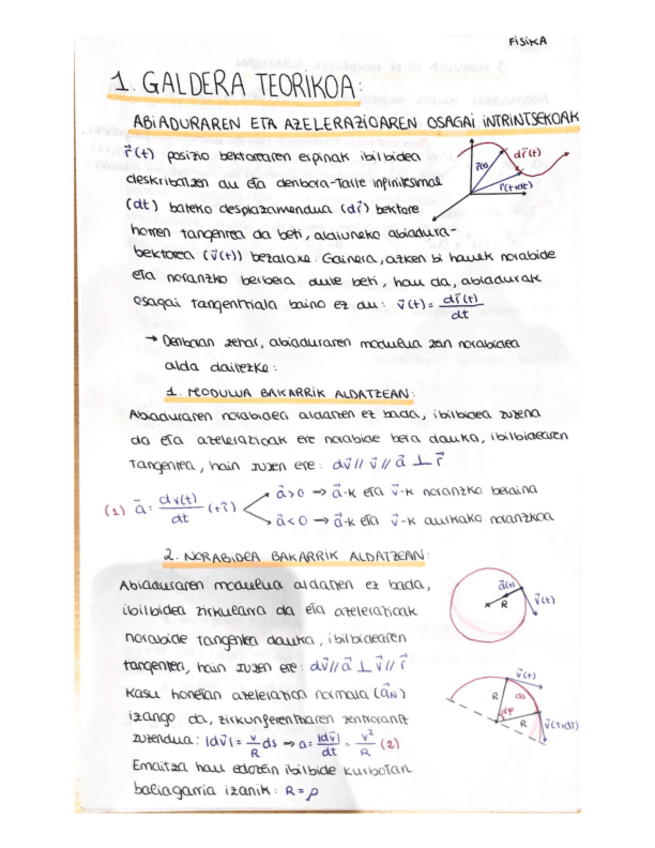 FISIKA
1. GALDERA TEORIKOA:
ABIADURAREN ETA AZELERAZIOAREN OSAGAI INTRINTSEKOAK
r⃗(t) posizio bektorearen erpinak ibilbidea
deskribatzen du eta denbora-tarte infinitesimal
(dt) bateko desplazamendua (dr⃗) bektore
horren tangentea da beti, aldiuneko abiadura-
bektorea (v⃗(t)) bezalaxe. Gainera, azken bi hauek norabide
eta noranzko berbera dute beti, hau da, abiadurak
osagai tangentziala baino ez du: v⃗(t) = dr⃗(t)/dt
r⃗(t) dr⃗(t) r⃗(t+dt)
→ Denboran zehar, abiaduraren modulua zein norabidea
alda daitezke:
1. MODULUA BAKARRIK ALDATZEAN:
Abiaduraren norabidea aldatzen ez bada, ibilbidea zuzena
da eta azelerazioak ere norabide bera dauka, ibilbidearen
tangentea, hain zuzen ere: dv⃗ // v⃗ // a⃗ ⊥ r⃗
(1) a⃗ = dv(t)/dt (+t⃗)
a⃗>0 → a⃗-k eta v⃗-k noranzko berdina
a⃗<0 → a⃗-k eta v⃗-k aurkako noranzkoa
2. NORABIDEA BAKARRIK ALDATZEAN:
Abiaduraren modulua aldatzen ez bada,
ibilbidea zirkularra da eta azelerazioak
norabide tangentea dauka, ibilbidearen
tangentea, hain zuzen ere: dv⃗ // a⃗ ⊥ v⃗ // r⃗
Kasu honetan azelerazioa normala (a⃗N)
izango da, zirkunferentziaren zentrorantz
zuzendua: |dv⃗| = v/R ds → a = |dv⃗|/dt = v²/R (2)
Emaitza hau edozein ibilbide kurbotan
baliagarria izanik: R = ρ
R v⃗(t)
v⃗(t) R ds dφ R v⃗(t+dt)